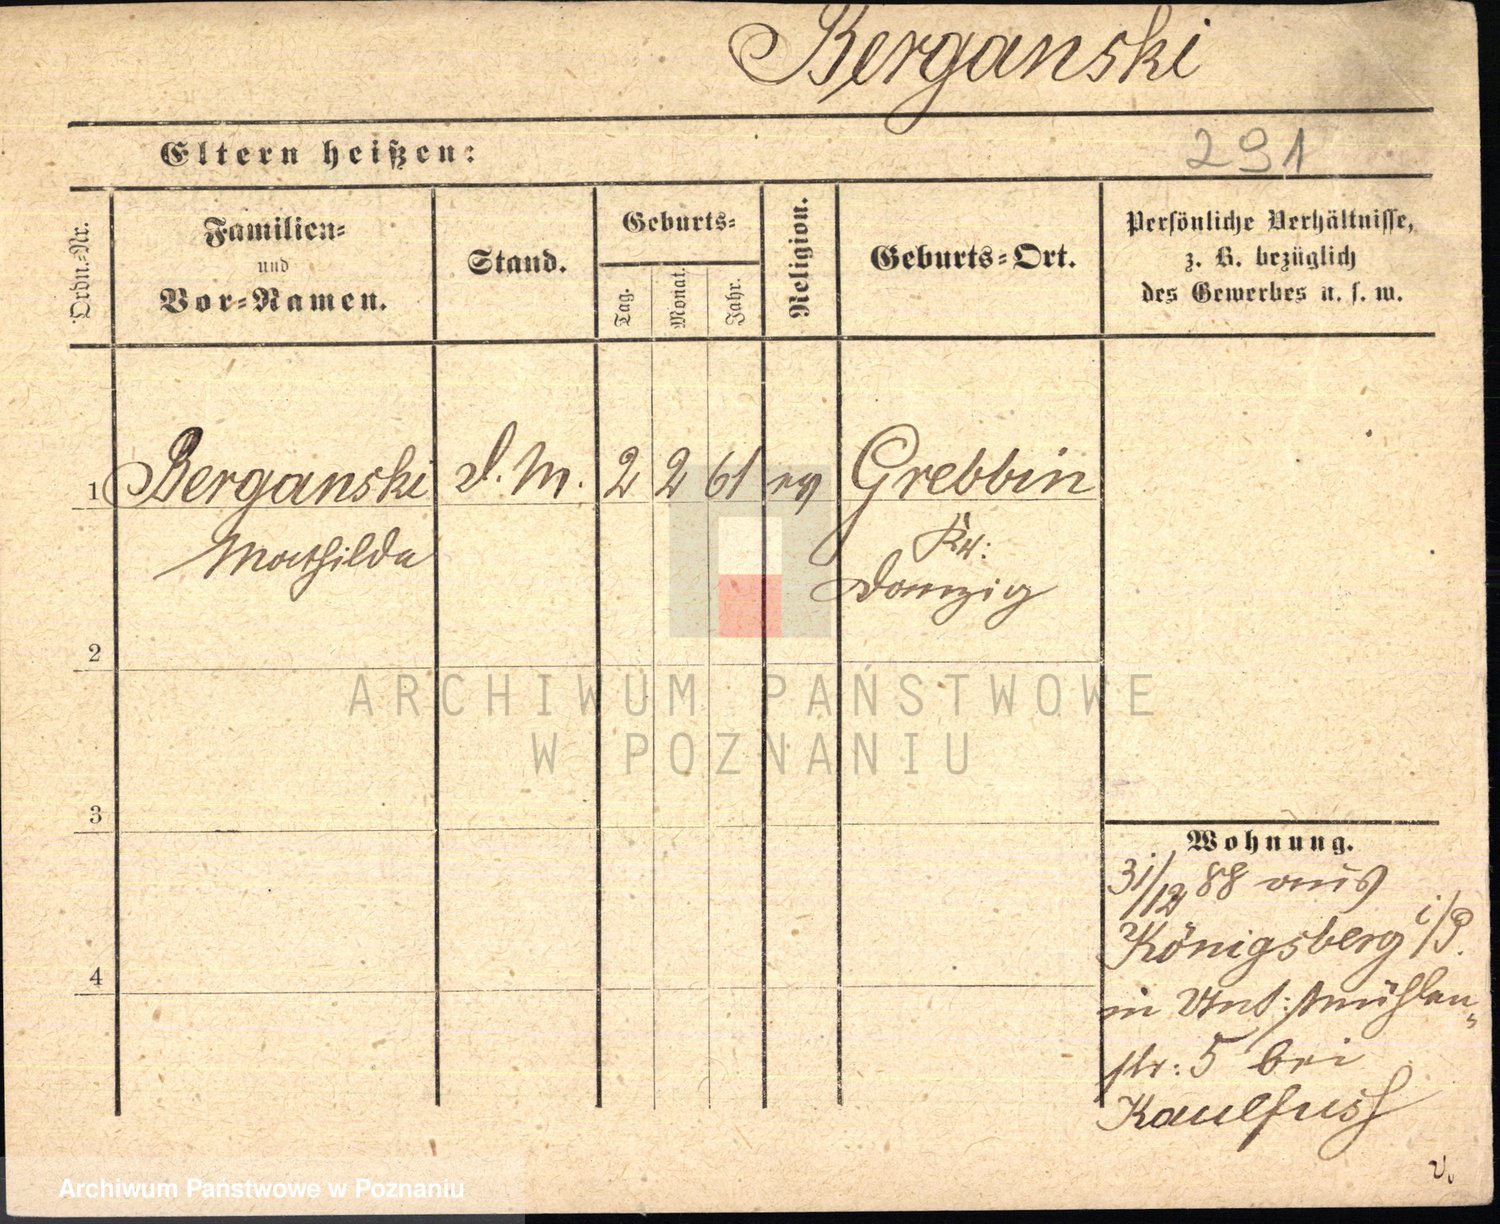 Berganski
Eltern heißen:
291
Ordn.-Nr.
Familien-
und
Vor-Namen.
Stand.
Geburts-
Tag.
Monat.
Jahr.
Religion.
Geburts-Ort.
Persönliche Verhältnisse,
z. B. bezüglich
des Gewerbes u. s. w.
1 Berganski D. M. 2 2 61 ev Grebbin
Mathilde
Kr:
Danzig
2
ARCHIWUM PAŃSTWOWE
W POZNANIU
3
4
Wohnung.
31/12 88 aus
Königsberg i/P.
in Unt: mühlen
str: 5 bei
Kaulfuss
v.
Archiwum Państwowe w Poznaniu